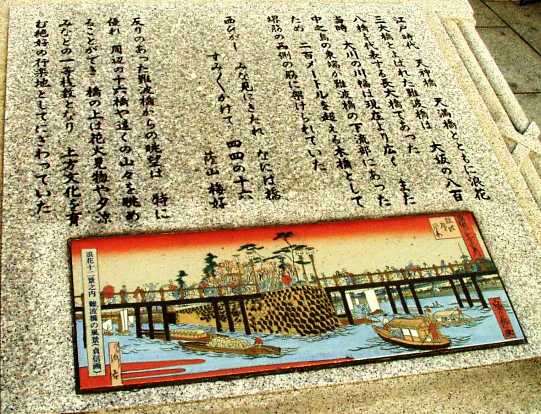 江戸時代、天神橋、天満橋とともに浪花
三大橋とよばれた難波橋は、大坂の八百
八橋を代表する長大橋であった。
当時、大川の川幅は現在より広く、また
中之島の東端が難波橋の下流部にあった
ため、二百メートルを超える木橋として
堺筋の西側の筋に架けられていた。
西ひがし みな見にきたれ なには橋
すみずみかけて 四四の十六
蔭山 梅好
反りのあった難波橋からの眺望は、特に
優れ、周辺の十六橋や遠くの山々を眺め
ることができ、橋の上は花火見物や夕涼
みなどの一等桟敷となり、上方文化を育
む絶好の行楽地としてにぎわっていた。
浪花十二景之内 難波橋の風景(貞信画)